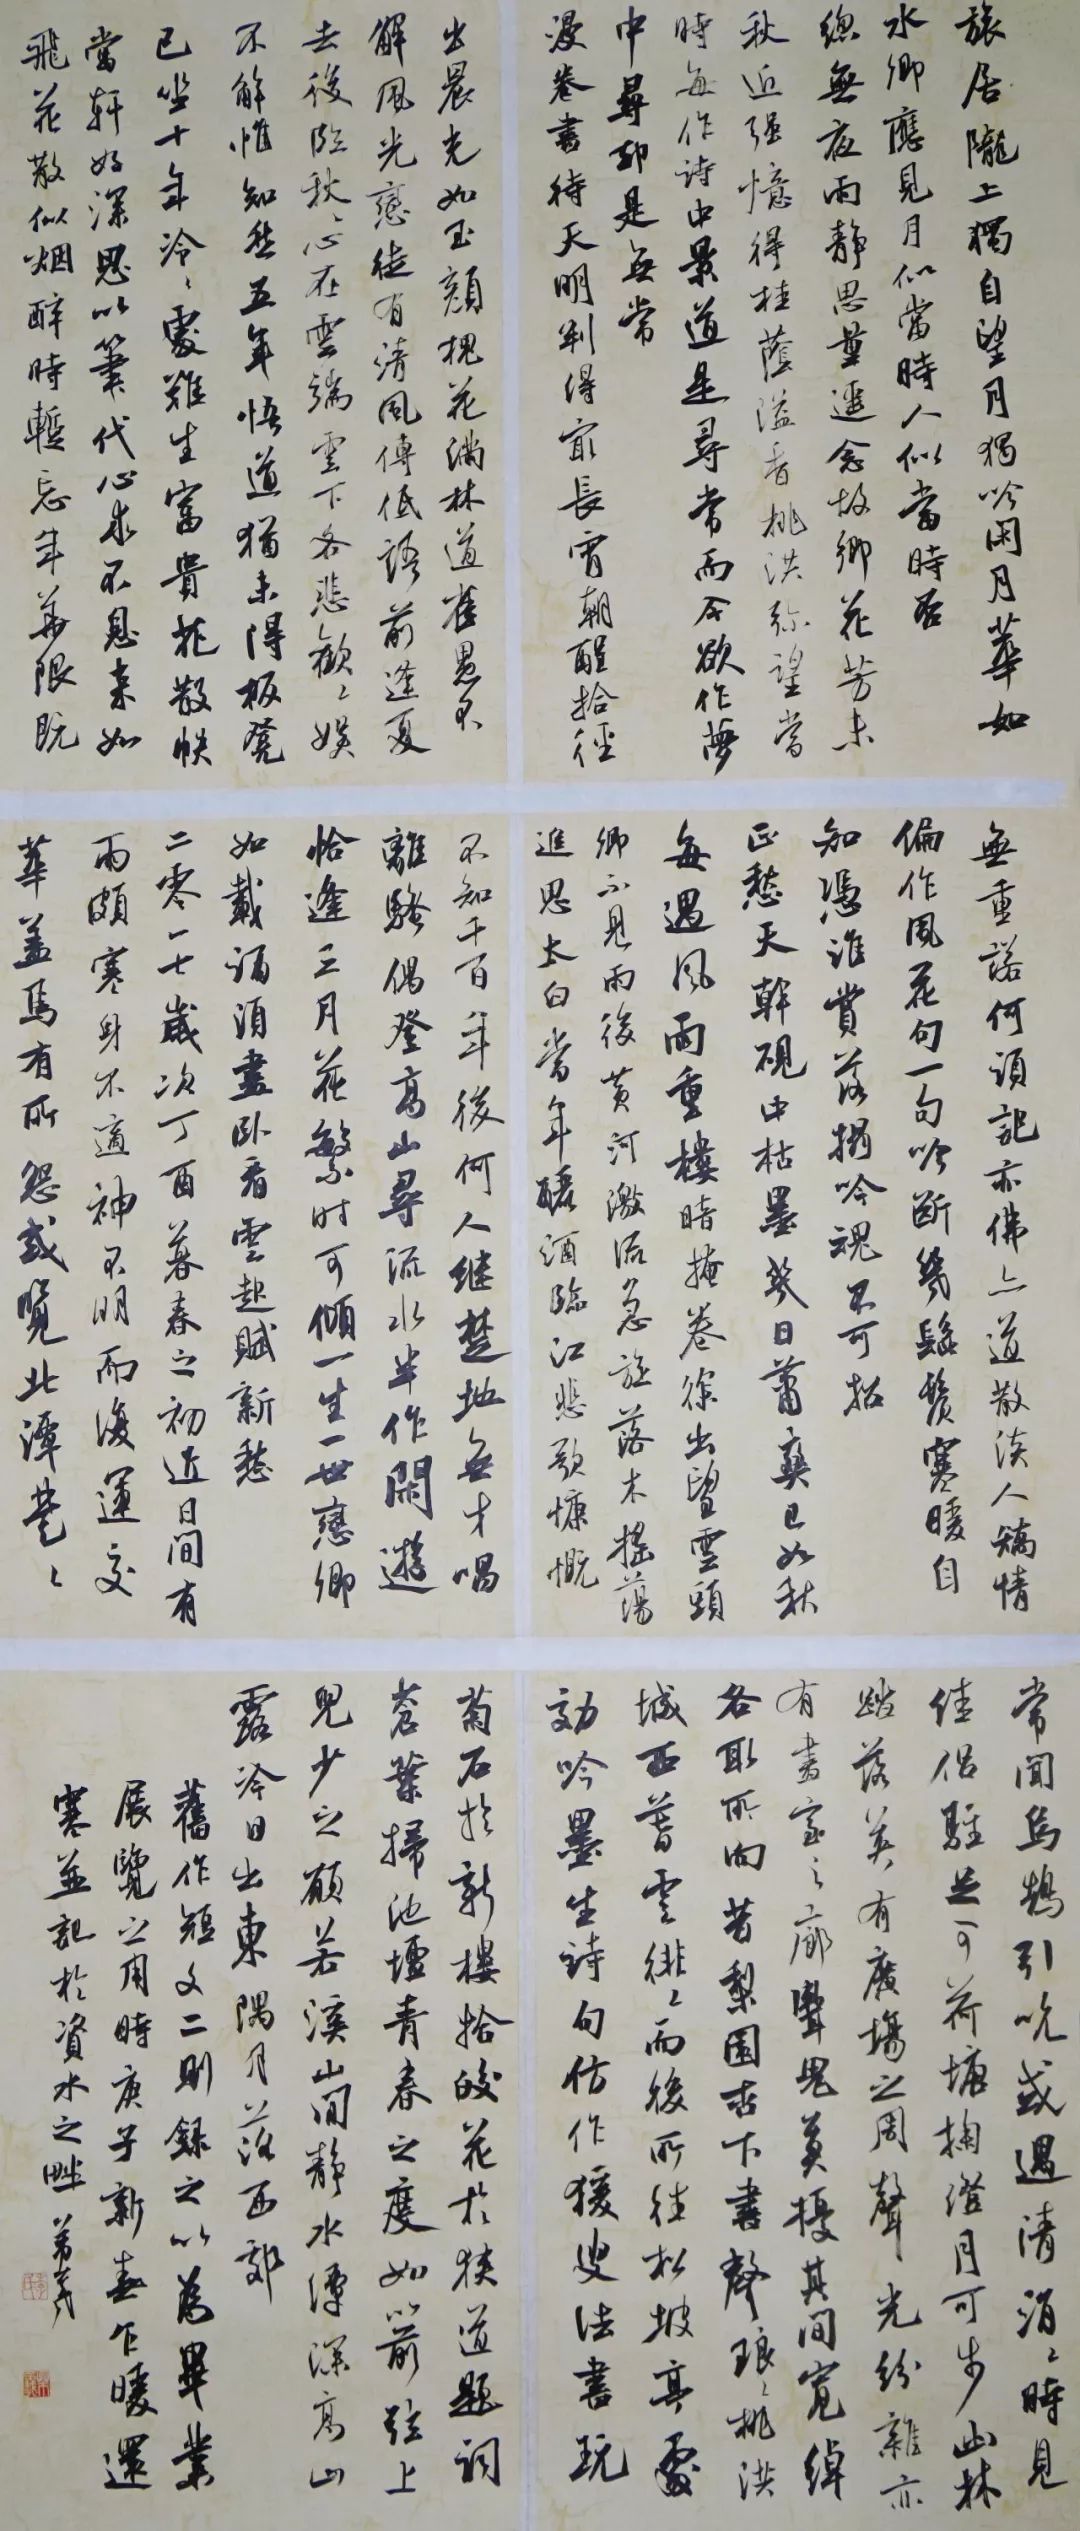 旅居隴上獨自望月獨吟閑月華如
水鄉應見月似當時人似當時否
總無夜雨靜思量遥念故鄉花芳未
秋近强憶得桂蔭溢香桃洪弥望當
時每作詩中景道是尋常而今欲作夢
中尋却是無常
漫卷書待天明判得最長宵朝醒拾徑
出晨光如玉顏槐花滿林道崔愚不
解風光戀徒有清風傳低語前逢夏
去後臨秋秋心在雲端雲下各悲歡歡娱
不解惟知愁五年悟道猶未得板凳
已坐十年冷冷處難生富貴花散帙
當軒好深思以筆代心求不息来如
飛花散似烟醉時暫忘年華限既
無重諾何須記亦佛亦道散淡人矯情
偏作風花句一句吟斷幾髭鬢寒暖自
知憑誰賞落拓吟魂不可招
正愁天幹硯中枯墨幾日蕭爽已如秋
每遇風雨重樓暗掩卷徐出望雲頭
卿不見雨後黄河激流急旋落木摇蕩
進思太白當年醵酒臨江悲歌慷慨
不知千百年後何人继楚地無才唱
離騷偶登高山尋流水半作閑遊
恰逢三月花繁时可傾一生一世戀卿
如載酒須盡卧看雲起賦新愁
二零一七歲次丁酉暮春之初近日間有
雨頗寒身不適神不明而後運交
華蓋焉有所怨或覽北潭楚楚
常聞烏鵲引吭或遇清涓涓時見
佳侣駐足可荷塘掬澄月可步山林
踏落英有廣場之周聲光紛雜亦
有書家之廊舉思莫擾其間寬綽
各取所向昔梨園杏下書聲琅琅桃洪
城西暮雲徘徘而後所往松坡亭處
效吟墨生詩句仿作猨叟法書玩
菊石於新樓拾皎花於狹道題詞
蒼葉掃池壇青春之度如以箭弦上
兒少之願若溪山間静水潭深高山
露冷日出東隅月落西郊
舊作短文二則録之以為畢業
展覽之用時庚子新春乍暖還
寒並記於資水之畔